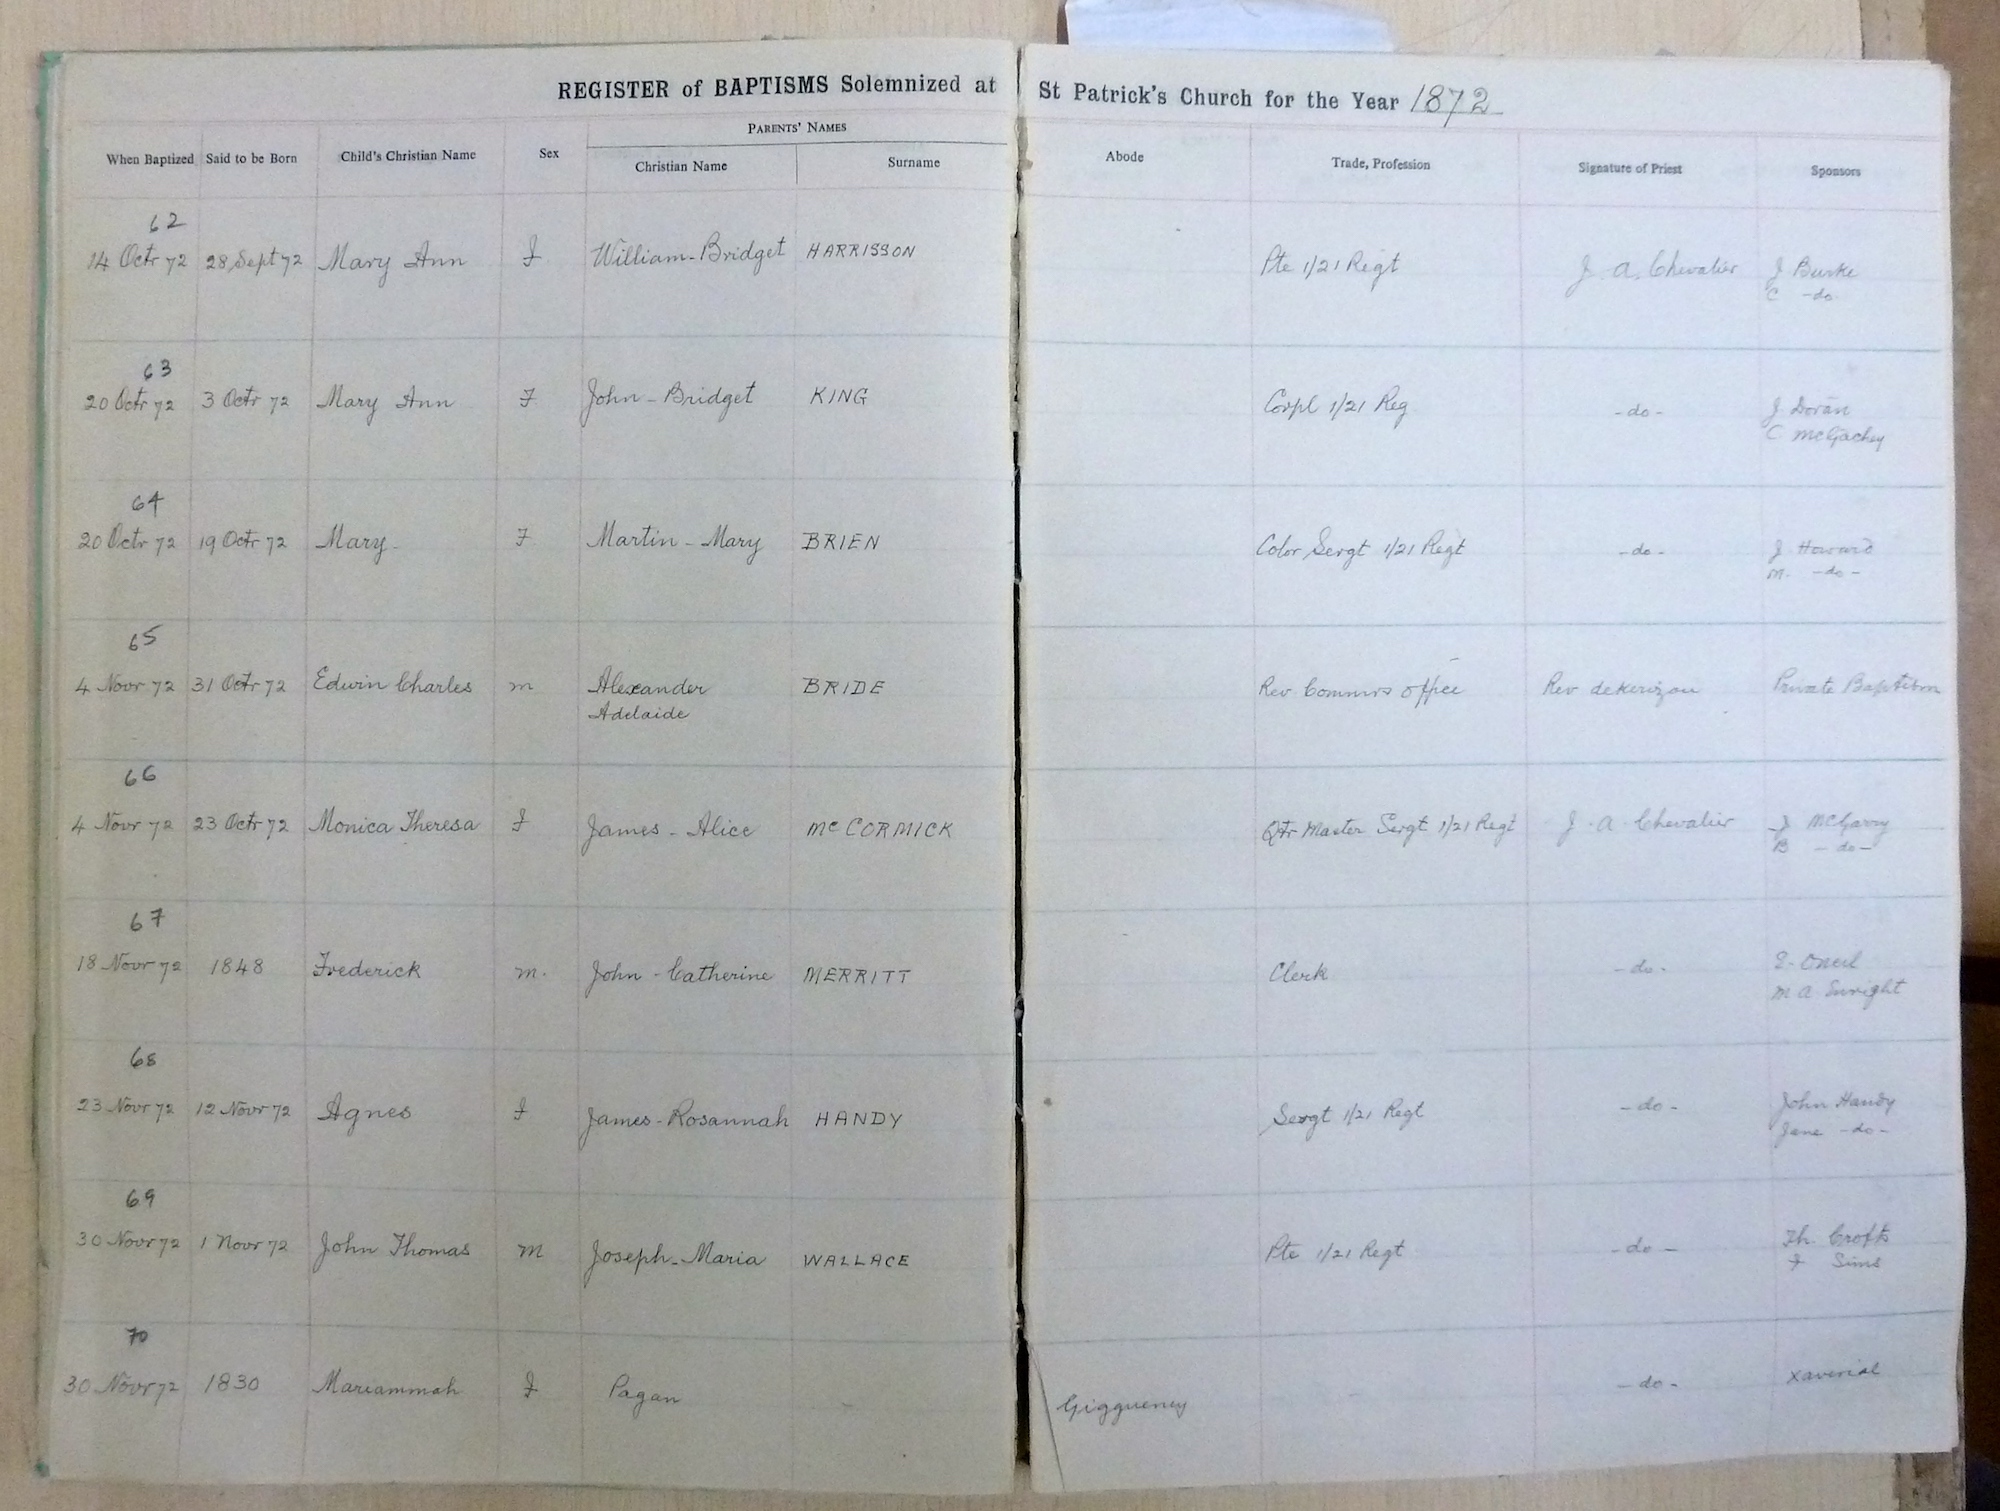 REGISTER of BAPTISMS Solemnized at St Patrick's Church for the Year 1872
PARENTS' NAMES
When Baptized Said to be Born Child's Christian Name Sex Christian Name Surname Abode Trade, Profession Signature of Priest Sponsors
62
14 Octr 72 28 Sept 72 Mary Ann F William-Bridget HARRISSON Pte 1/21 Regt J. A. Chevalier J Burke
C -do-
63
20 Octr 72 3 Octr 72 Mary Ann F John - Bridget KING Corpl 1/21 Reg -do- J Doran
C McGachey
64
20 Octr 72 19 Octr 72 Mary- F Martin - Mary BRIEN Color Sergt 1/21 Regt -do- J Howard
M. -do-
65
4 Novr 72 31 Octr 72 Edwin Charles m Alexander BRIDE Rev Commrs office Rev deKerizou Private Baptism
Adelaide
66
4 Novr 72 23 Octr 72 Monica Theresa F James - Alice McCORMICK Qtr Master Sergt 1/21 Regt J. A Chevalier J McGarry
B -do-
67
18 Novr 72 1848 Frederick m. John - Catherine MERRITT Clerk -do- E- Oneil
M A Enright
68
23 Novr 72 12 Novr 72 Agnes F James - Rosannah HANDY Sergt 1/21 Regt -do- John Handy
Jane -do-
69
30 Novr 72 1 Novr 72 John Thomas M Joseph - Maria WALLACE Pte 1/21 Regt -do- Th. Crofts
F Sims
70
30 Novr 72 1830 Mariammah F Pagan -do- Xaverial
Giggueney